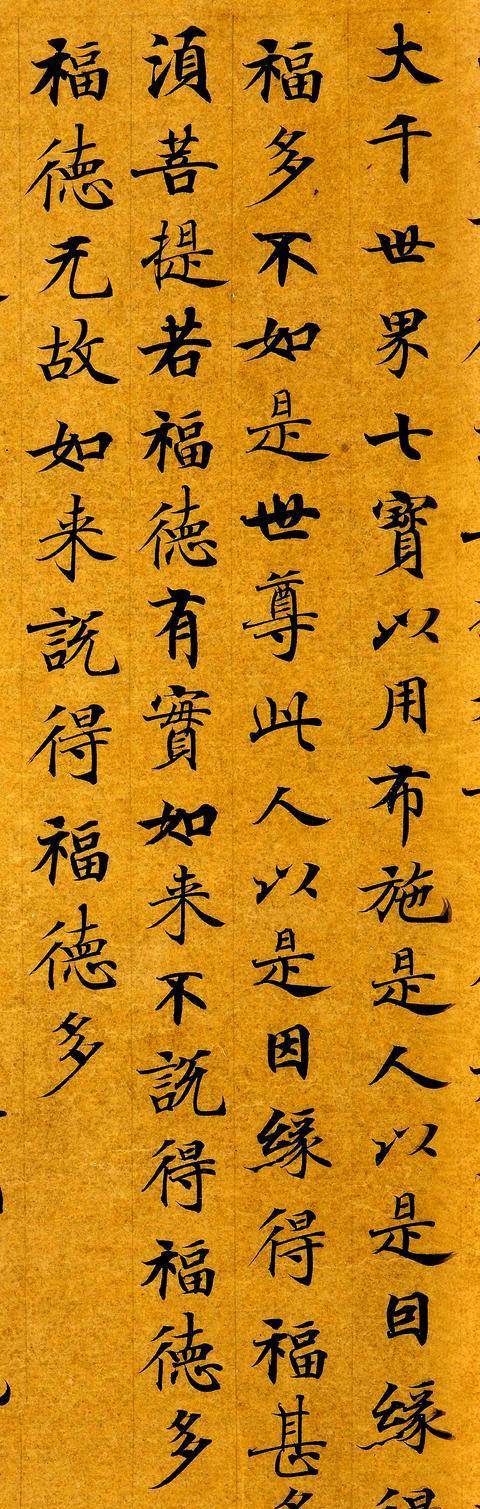 大千世界七寶以用布施是人以是囙緣得
福多不如是世尊此人以是因緣得福甚多
須菩提若福徳有實如来不說得福徳多
福徳无故如来說得福徳多